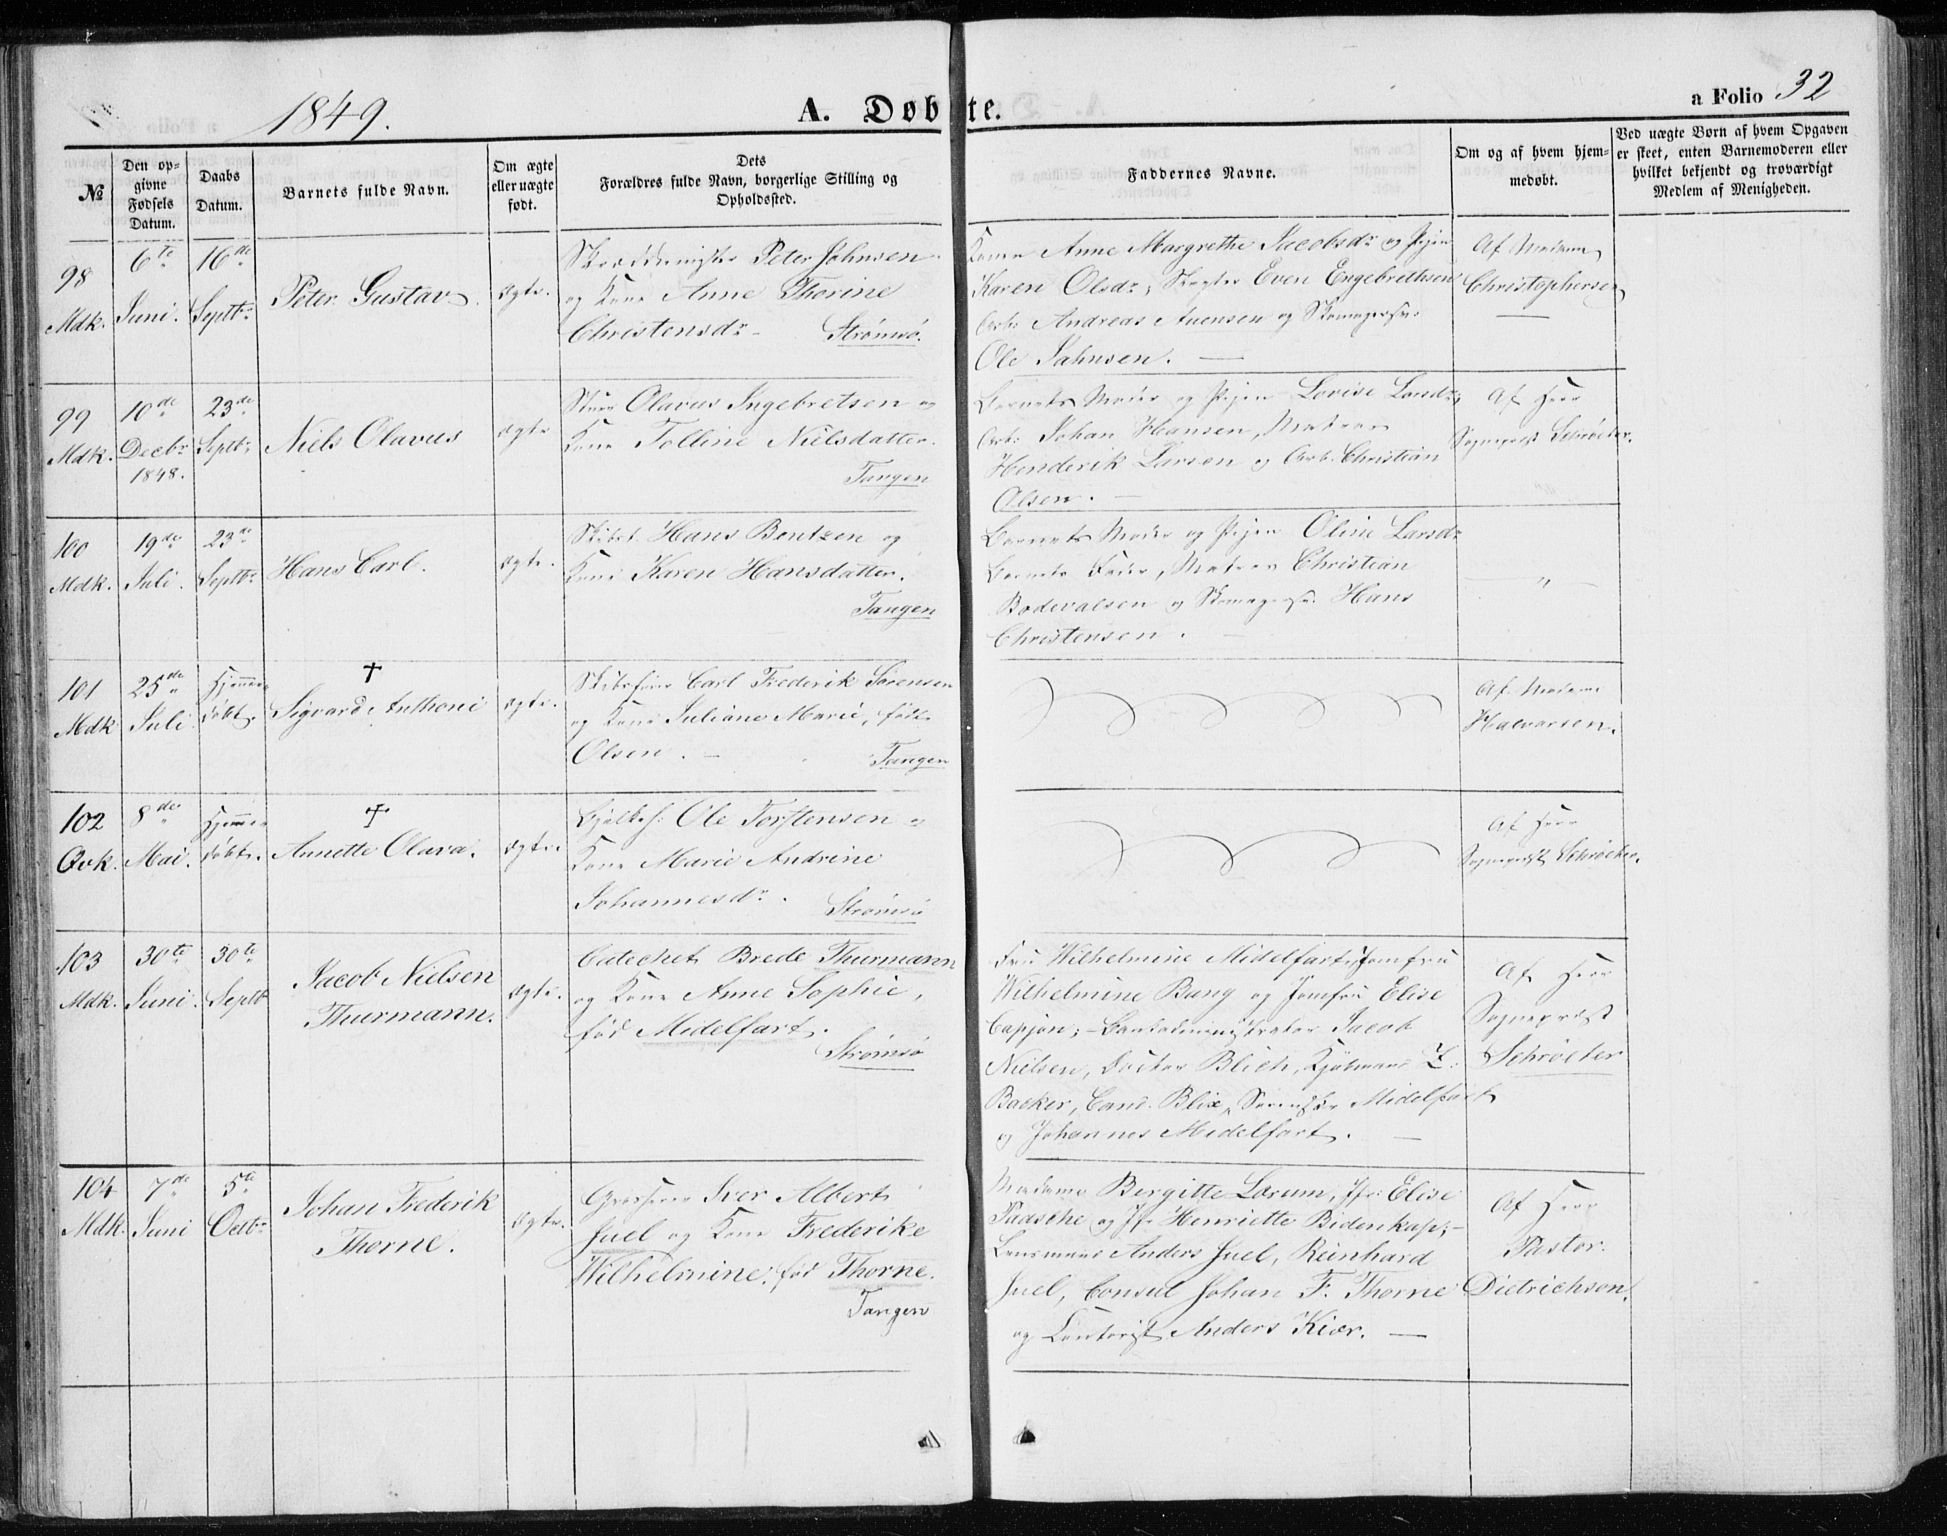 1849.
A. Døbte.
a Folio 32
№
Den op-
givne
Fødsels
Datum.
Daabs
Datum.
Barnets fulde Navn.
Om ægte
eller uægte
født.
Dets
Forældres fulde Navn, borgerlige Stilling og
Opholdssted.
Faddernes Navne.
Om og af hvem hjem-
medøbt.
Ved uægte Børn af hvem Opgaven
er skeet, enten Barnemoderen eller
hvilket bekjendt og troværdigt
Medlem af Menigheden.
98
Mdk.
6te
Juni.
16de
Septbr
Peter Gustav
ægte.
Peter Johnsen
og Kone Anne Thorine
Christensdr
Strømsø.
Kone Anne Margrethe Jacobsdr og Pigen
Karen Olsdr, Even Engebrethsen
Arb: Andreas Auensen og
Ole Jahnsen.
Af Madam
Christophersen
99
Mdk.
10de
Decbr
1848.
23de
Septbr
Niels Olavus
ægte
Olavus Ingebretsen og
Kone Tolline Nielsdatter.
Tangen
Barnets Moder og Pigen Lovise Larsdr,
Arb: Johan Hansen, Matros
Henderik Larsen og Arb. Christian
Olsen.
Af Herr
Sognepræst Schrøeter.
100
Mdk.
19de
Juli.
23de
Septbr
Hans Carl.
ægte.
Hans Bentzen og
Kone Karen Hansdatter.
Tangen
Barnets Moder og Pigen Oline Larsdr
Barnets Fader, Matros Christian
Bodevalsen og Hans
Christensen.
"
101
Mdk
25de
Juli
Hjemme
døbt.
†
Sigvard Anthoni
ægte.
Carl Frederik Sørensen
og Kone Juliane Marie, født
Olsen.
Tangen
Af Madame
Halvorsen.
102
Qvk.
8de
Mai.
Hjemme
døbt.
†
Annette Olava.
ægte.
Ole Torstensen og
Kone Marie Andrine
Johannesdr.
Strømsø
Af Herr
Sognepræst Schrøeter.
103
Mdk.
30te
Juni.
30te
Septb
Jacob Nielsen
Thurmann.
ægte.
Catechet Brede Thurmann
og Kone Anne Sophie,
fød Midelfart.
Strømsø
Fru Wilhelmine Midelfart, Jomfru
Wilhelmine Bang og Jomfru Elise
Capjon; Jacob
Nielsen, Doctor Blich, Kjøbmand
Backer, Cand. Blix, Midelfart
og Johannes Midelfart.
Af Herr
Sognepræst
Schrøeter
104
Mdk.
7de
Juni
5te
Octbr
Johan Frederik
Thorne.
ægte.
Iver Albert
Juel og Kone Frederike
Wilhelmine, fød Thorne.
Tangen
Madame Bergitte Lorum, Jfr: Elise
Paasche og Jfr Henriette Bidenkap;
Lensmand Anders Juel, Reinhard
Juel, Consul Johan F. Thorne
og Contorist Anders Kiær.
Af Herr
Pastor
Dietrichson.